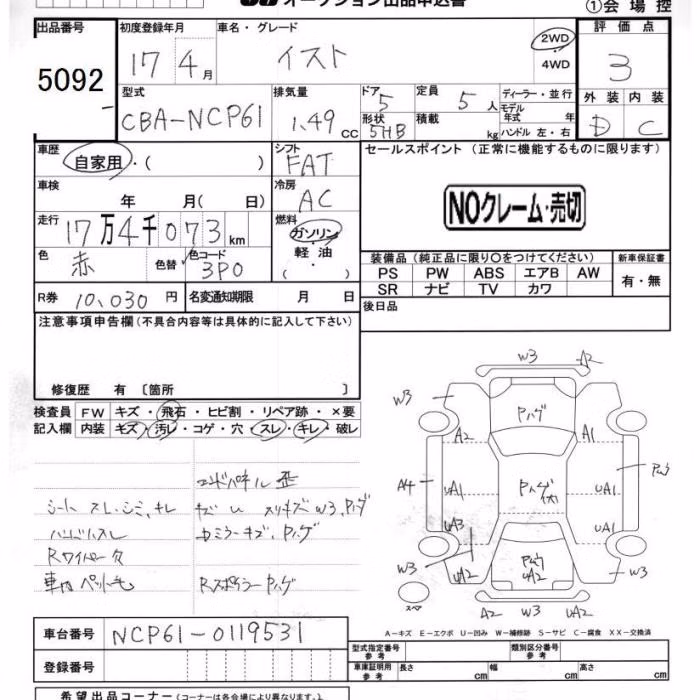 オークション出品申込書
①会場控
出品番号
5092
初度登録年月
17年4月
車名・グレード
イスト
2WD
4WD
評価点
3
外装 内装
D C
型式
CBA-NCP61
排気量
1.49cc
ドア
5
形状
5HB
定員
5人
積載
kg
ディーラー・並行
モデル年式 年
ハンドル 左・右
車歴
自家用・( )
シフト
FAT
車検
年 月( 日)
冷房
AC
走行
17万4千073km
燃料
ガソリン
軽油
( )
色
赤
色替
色コード
3P0
R券 10,030円
名変通知期限 月 日
セールスポイント (正常に機能するものに限ります)
NOクレーム・売切
装備品(純正品に限り○をつけてください)
新車保証書
PS PW ABS エアB AW
SR ナビ TV カワ
有・無
後日品
注意事項申告欄(不具合内容等は具体的に記入して下さい)
修復歴 有 〔箇所 〕
検査員 FW キズ・飛石・ヒビ割・リペア跡・×要
記入欄 内装 キズ・汚レ・コゲ・穴・スレ・キレ・破レ
エンドパネル 歪
シート スレ・シミ、キレ
キズ U スリキズ W3、Pハゲ
ハンドルスレ
ドミラーキズ、Pハゲ
Rワイパー欠
車内 ペット毛
Rスポイラー Pハゲ
W3 A2
W3
Pハゲ
A2 A1
A4 UA1 Pハゲ(大) UA1
UA3 UA1
W3 UA2 UA2 W3
A2 W3 UA2
スペア
A-キズ E-エクボ U-凹み W-補修跡 S-サビ C-腐食 XX-交換済
車台番号 NCP61-0119531
登録番号
型式指定番号 参考
類別区分番号 参考
車庫証明用 参考
長さ cm
幅 cm
高さ cm
希望出品コーナー(コーナーは各会場により異なります。)